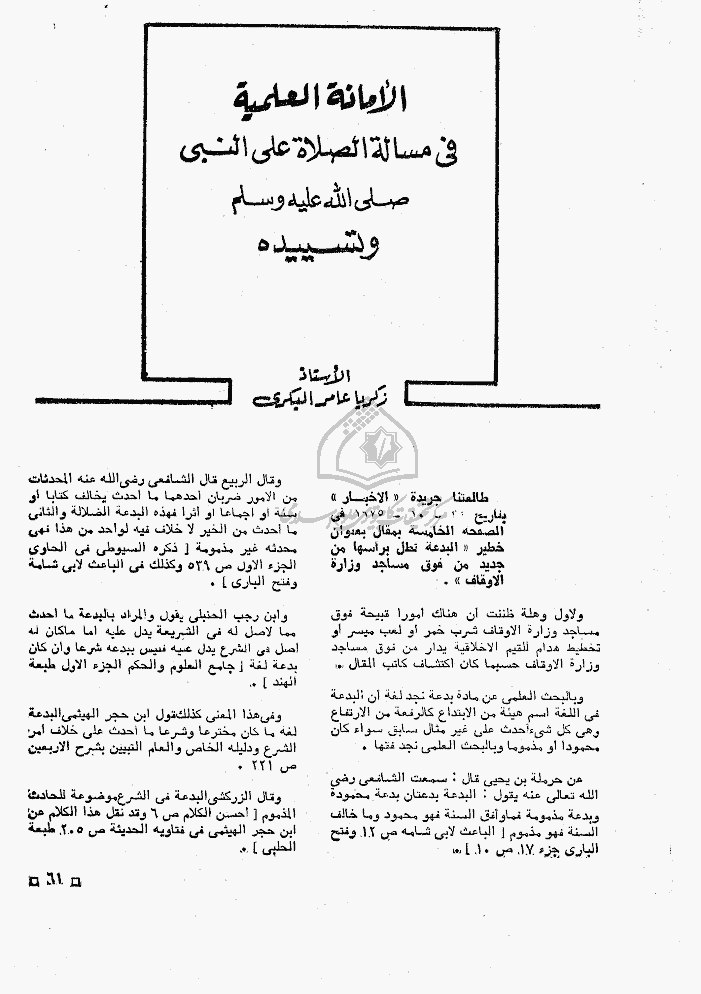 الأمانة العلمية
في مسالة الصلاة على النبى
صلى الله عليه وسلم
وتسييده
الأستاذ
زكريا عامر البكرى
طالعتنا جريدة « الاخبار »
بتاريخ
الصفحه الخامسة بمقال بعنوان
خطير « البدعة تطل براسها من
جديد من فوق مساجد وزارة
الاوقاف » .
ولاول وهلة ظننت أن هناك أمورا قبيحة فوق
مساجد وزارة الاوقاف شرب خمر أو لعب ميسر أو
تخطيط هدام للقيم الاخلاقية يدار من فوق مساجد
وزارة الاوقاف حسبما كان اكتشاف كاتب المقال ..
وبالبحث العلمى عن مادة بدعة نجد لغة أن البدعة
فى اللغة اسم هيئة من الابتداع كالرفعة من الارتفاع
وهى كل شىء أحدث على غير مثال سابق سواء كان
محمودا أو مذموما وبالبحث العلمى نجد فتها .
عن حرملة بن يحيى قال : سمعت الشافعى رضى
الله تعالى عنه يقول : البدعة بدعتان بدعة محمودة
وبدعة مذمومة فماوافق السنة فهو محمود وما خالف
السنة فهو مذموم [ الباعث لابى شامه ص ١٢ وفتح
البارى جزء ١٧ ص ١٠ ] ..
وقال الربيع قال الشافعى رضى الله عنه المحدثات
من الامور ضربان أحدهما ما أحدث يخالف كتابا أو
سنة أو اجماعا أو أثرا فهذه البدعة الضلالة والثانى
ما أحدث من الخير لا خلاف فيه لواحد من هذا فهى
محدثه غير مذمومة [ ذكره السيوطى فى الحاوى
الجزء الاول ص ٥٣٩ وكذلك فى الباعث لابى شامة
وفتح البارى ] .
وابن رجب الحنبلى يقول والمراد بالبدعة ما أحدث
مما لاصل له فى الشريعة يدل عليه أما ماكان له
أصل فى الشرع يدل عليه فليس ببدعه شرعا وان كان
بدعة لغة [ جامع العلوم والحكم الجزء الاول طبعة
الهند ] .
وفى هذا المعنى كذلك قول ابن حجر الهيثمى البدعة
لغة ما كان مخترعا وشرعا ما أحدث على خلاف أمر
الشرع ودليله الخاص والعام التبيين بشرح الاربعين
ص ٢٢١ .
وقال الزركشى البدعة فى الشرع موضوعة للحادث
المذموم [ أحسن الكلام ص ٦ وقد نقل هذا الكلام عن
ابن حجر الهيثمى فى فتاويه الحديثة ص ٢٠٥ طبعة
الحلبى ] .
٦١